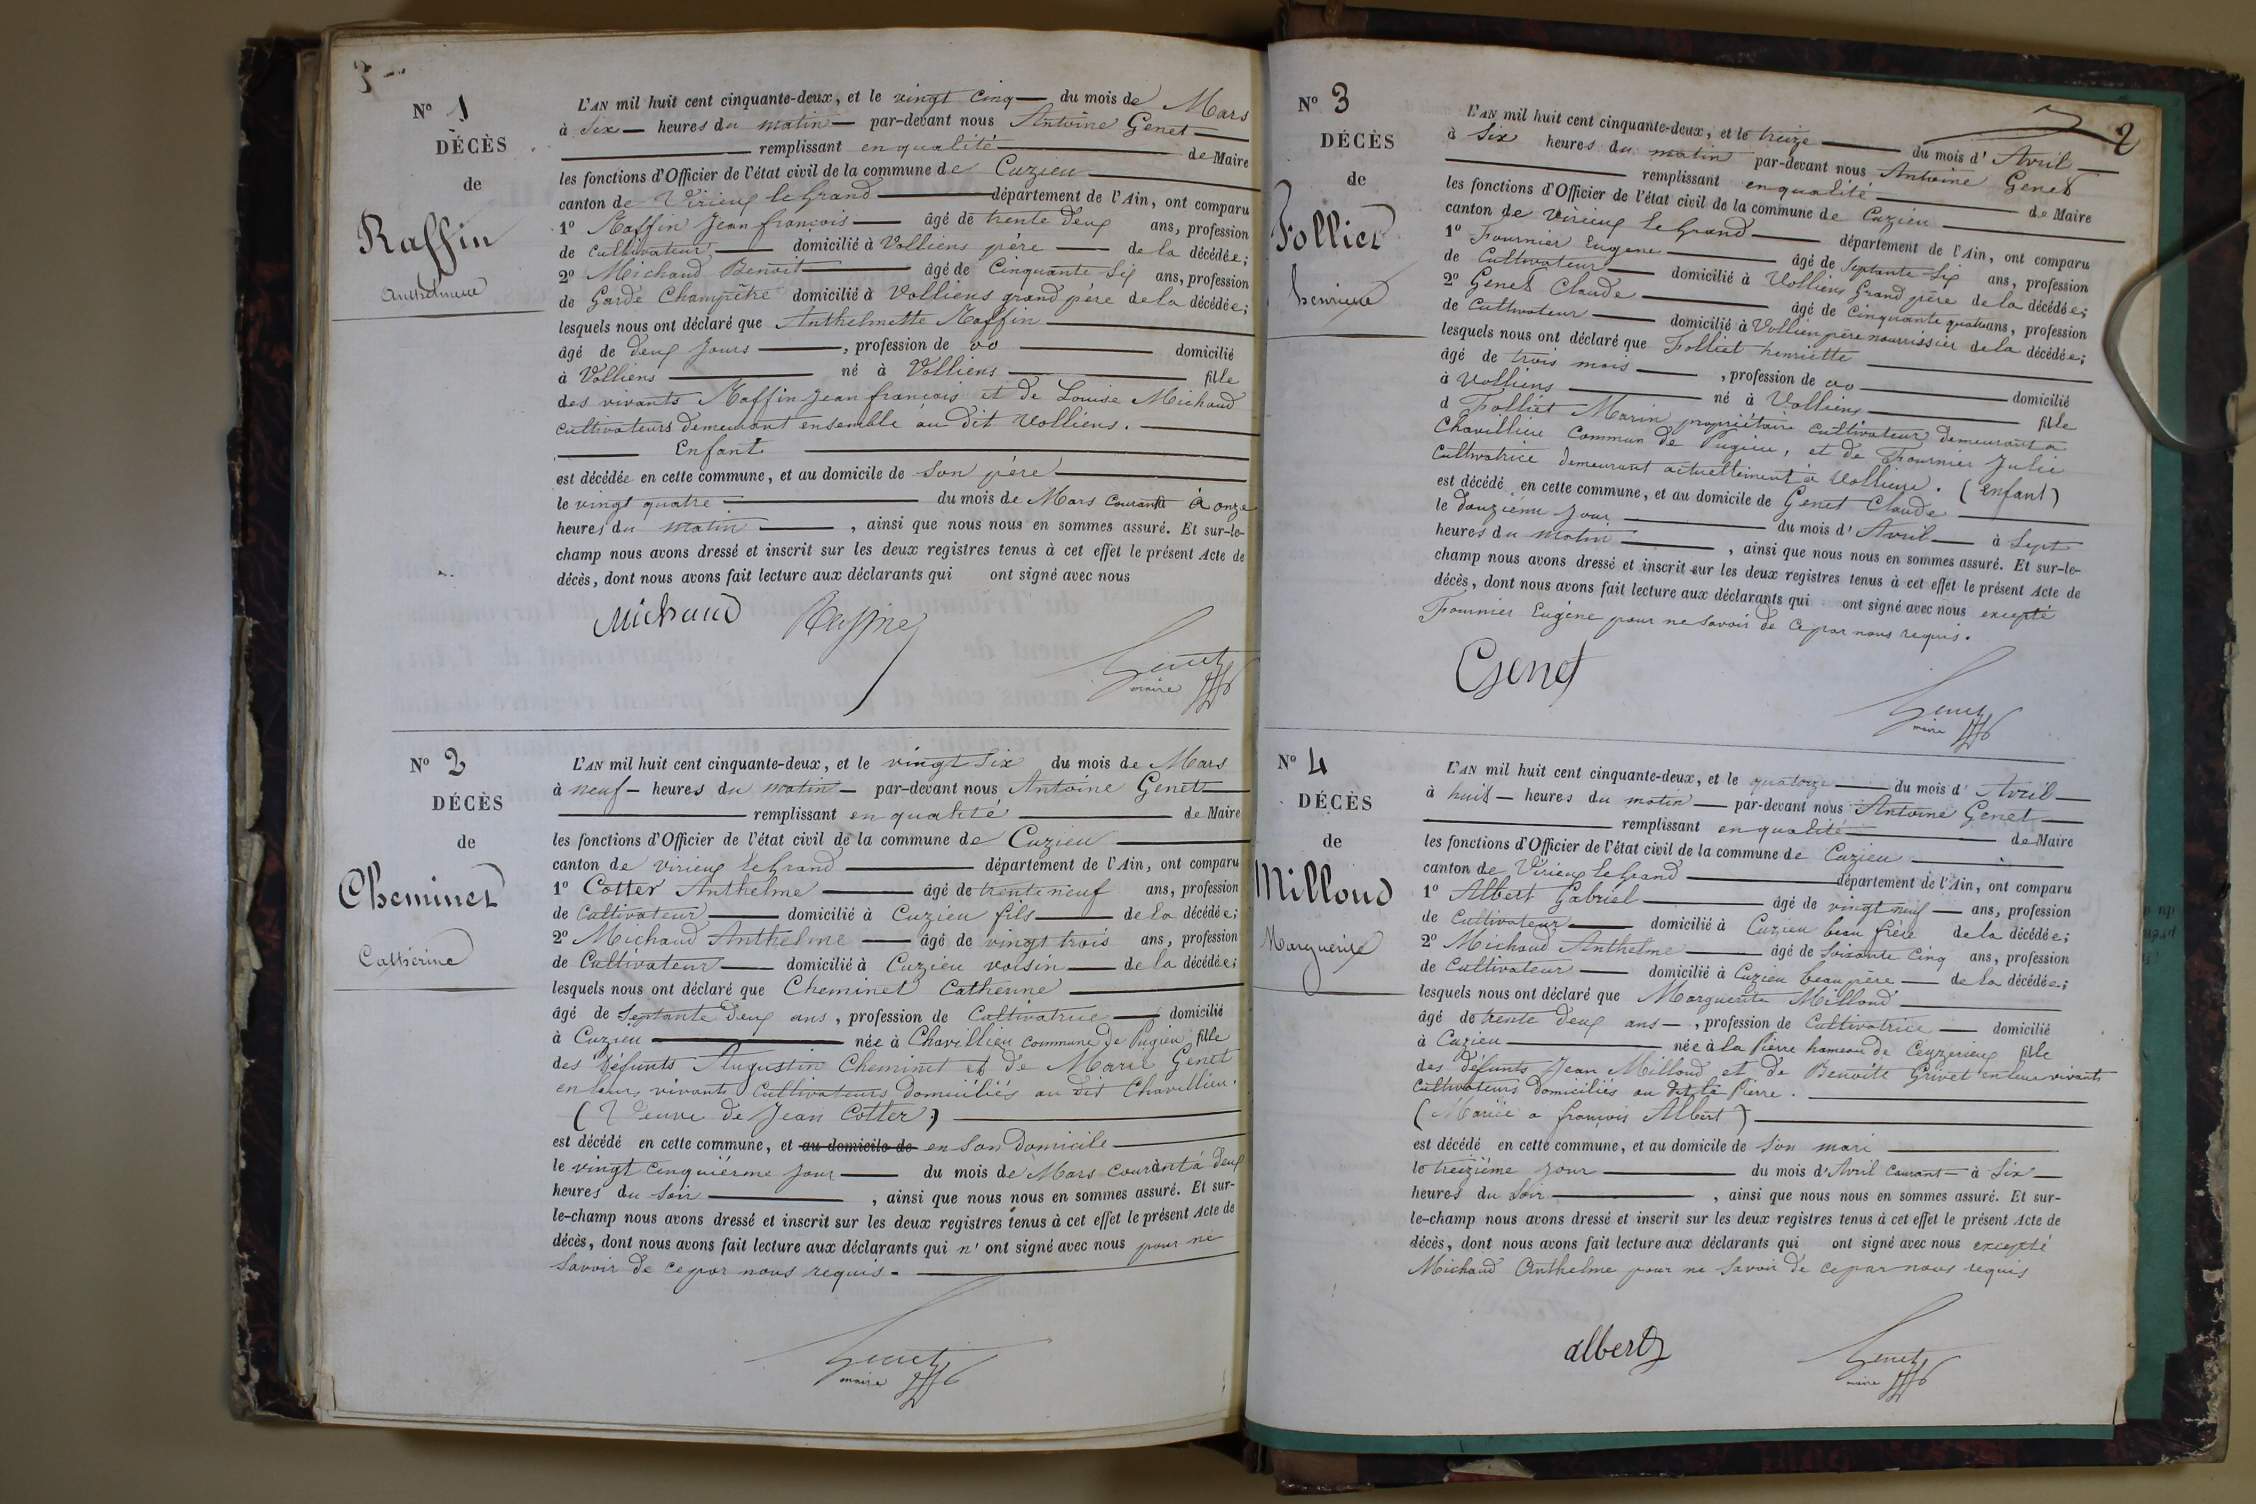 3
N° 1
DÉCÈS
de
Raffin
Anthelmette
L'AN mil huit cent cinquante-deux, et le vingt cinq du mois de Mars
à six heures du matin par-devant nous Antoine Genet
remplissant en qualité de Maire
les fonctions d'Officier de l'état civil de la commune de Cuzieu
canton de Virieux le Grand département de l'Ain, ont comparu
1° Raffin Jean françois âgé de trente deux ans, profession
de cultivateur domicilié à Volliens père de la décédée;
2° Michaud Benoit âgé de Cinquante six ans, profession
de Garde Champêtre domicilié à Volliens grand père de la décédée;
lesquels nous ont déclaré que Anthelmette Raffin
âgé de deux Jours, profession de oo domicilié
à Volliens né à Volliens fille
des vivants Raffin Jean françois et de Louise Michaud
cultivateurs demeurant ensemble au dit Volliens.
Enfant
est décédée en cette commune, et au domicile de son père
le vingt quatre du mois de Mars courant à onze
heures du matin, ainsi que nous nous en sommes assuré. Et sur-le-
champ nous avons dressé et inscrit sur les deux registres tenus à cet effet le présent Acte de
décès, dont nous avons fait lecture aux déclarants qui ont signé avec nous
Michaud Genet
maire
N° 2
DÉCÈS
de
Cheminet
Cathérine
L'AN mil huit cent cinquante-deux, et le vingt six du mois de Mars
à neuf heures du matin par-devant nous Antoine Genet
remplissant en qualité de Maire
les fonctions d'Officier de l'état civil de la commune de Cuzieu
canton de Virieux le Grand département de l'Ain, ont comparu
1° Cotter Anthelme âgé de trente neuf ans, profession
de Cultivateur domicilié à Cuzieu fils de la décédée;
2° Michaud Anthelme âgé de vingt trois ans, profession
de Cultivateur domicilié à Cuzieu voisin de la décédée;
lesquels nous ont déclaré que Cheminet Catherine
âgé de Septante deux ans, profession de Cultivatrice domicilié
à Cuzieu née à Chavillieu commune de Pugieu fille
des défunts Augustin Cheminet et de Marie Genet
en leurs vivants Cultivateurs domiciliés au dit Chavillieu.
(Veuve de Jean Cotter)
est décédé en cette commune, et au domicile de en son Domicile
le vingt cinquième jour du mois de Mars courant à deux
heures du soir, ainsi que nous nous en sommes assuré. Et sur-
le-champ nous avons dressé et inscrit sur les deux registres tenus à cet effet le présent Acte de
décès, dont nous avons fait lecture aux déclarants qui n' ont signé avec nous pour ne
savoir de ce par nous requis.
Genet
maire
2
N° 3
DÉCÈS
de
Folliet
henriette
L'AN mil huit cent cinquante-deux, et le treize du mois d' Avril
à Six heures du matin par-devant nous Antoine Genet
remplissant en qualité de Maire
les fonctions d'Officier de l'état civil de la commune de Cuzieu
canton de Virieux le Grand département de l'Ain, ont comparu
1° Fournier Eugene âgé de Septante six ans, profession
de Cultivateur domicilié à Volliens Grand père de la décédée;
2° Genet Claude âgé de Cinquante quatre ans, profession
de Cultivateur domicilié à Vollien père nourrissier de la décédée;
lesquels nous ont déclaré que Folliet henriette
âgé de trois mois, profession de oo domicilié
à Volliens né à Volliens fille
d Folliet Marin propriétaire cultivateur demeurant a
Chavillieu Commun de Pugieu, et de Fournier Julie
Cultivatrice demeurant actuellement à Vollieu. (enfant)
est décédé en cette commune, et au domicile de Genet Claude
le douzième jour du mois d' Avril à Sept
heures du matin, ainsi que nous nous en sommes assuré. Et sur-le-
champ nous avons dressé et inscrit sur les deux registres tenus à cet effet le présent Acte de
décès, dont nous avons fait lecture aux déclarants qui ont signé avec nous excepté
Fournier Eugène pour ne savoir de ce par nous requis.
Genet
Genet
maire
N° 4
DÉCÈS
de
Milloud
Marguerite
L'AN mil huit cent cinquante-deux, et le quatorze du mois d' Avril
à huit heures du matin par-devant nous Antoine Genet
remplissant en qualité de Maire
les fonctions d'Officier de l'état civil de la commune de Cuzieu
canton de Virieux le Grand département de l'Ain, ont comparu
1° Albert Gabriel âgé de vingt neuf ans, profession
de Cultivateur domicilié à Cuzieu beau frère de la décédée;
2° Michaud Anthelme âgé de Soixante Cinq ans, profession
de Cultivateur domicilié à Cuzieu beau père de la décédée;
lesquels nous ont déclaré que Marguerite Milloud
âgé de trente deux ans, profession de Cultivatrice domicilié
à Cuzieu née à la Pierre hameau de Ceyzerieux fille
des défunts Jean Milloud et de Benoite Grivet en leur vivants
Cultivateurs domiciliés au dit la Pierre.
(Mariée a françois Albert)
est décédé en cette commune, et au domicile de son mari
le treizième jour du mois d'Avril Courant à Six
heures du soir, ainsi que nous nous en sommes assuré. Et sur-
le-champ nous avons dressé et inscrit sur les deux registres tenus à cet effet le présent Acte de
décès, dont nous avons fait lecture aux déclarants qui ont signé avec nous excepté
Michaud Anthelme pour ne savoir de ce par nous requis
albert
Genet
maire